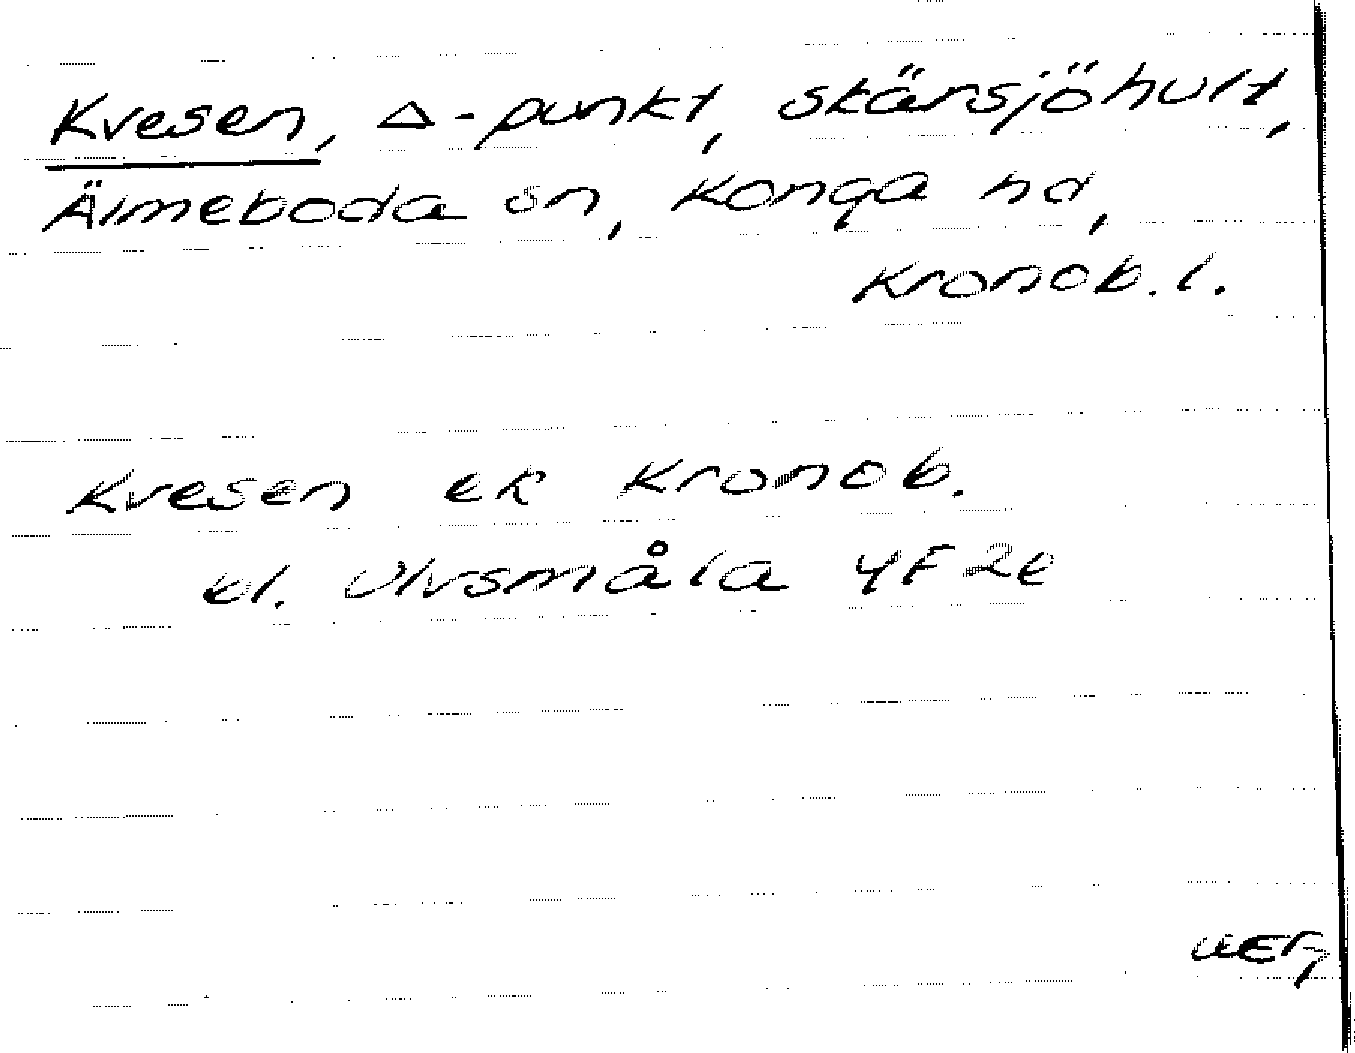 Kvesen, △-punkt, Skärsjöhult,
Älmeboda sn, Konga hd,
Kronob. l.
Kvesen ek Kronob.
bl. Ulvsmåla 4F 2e